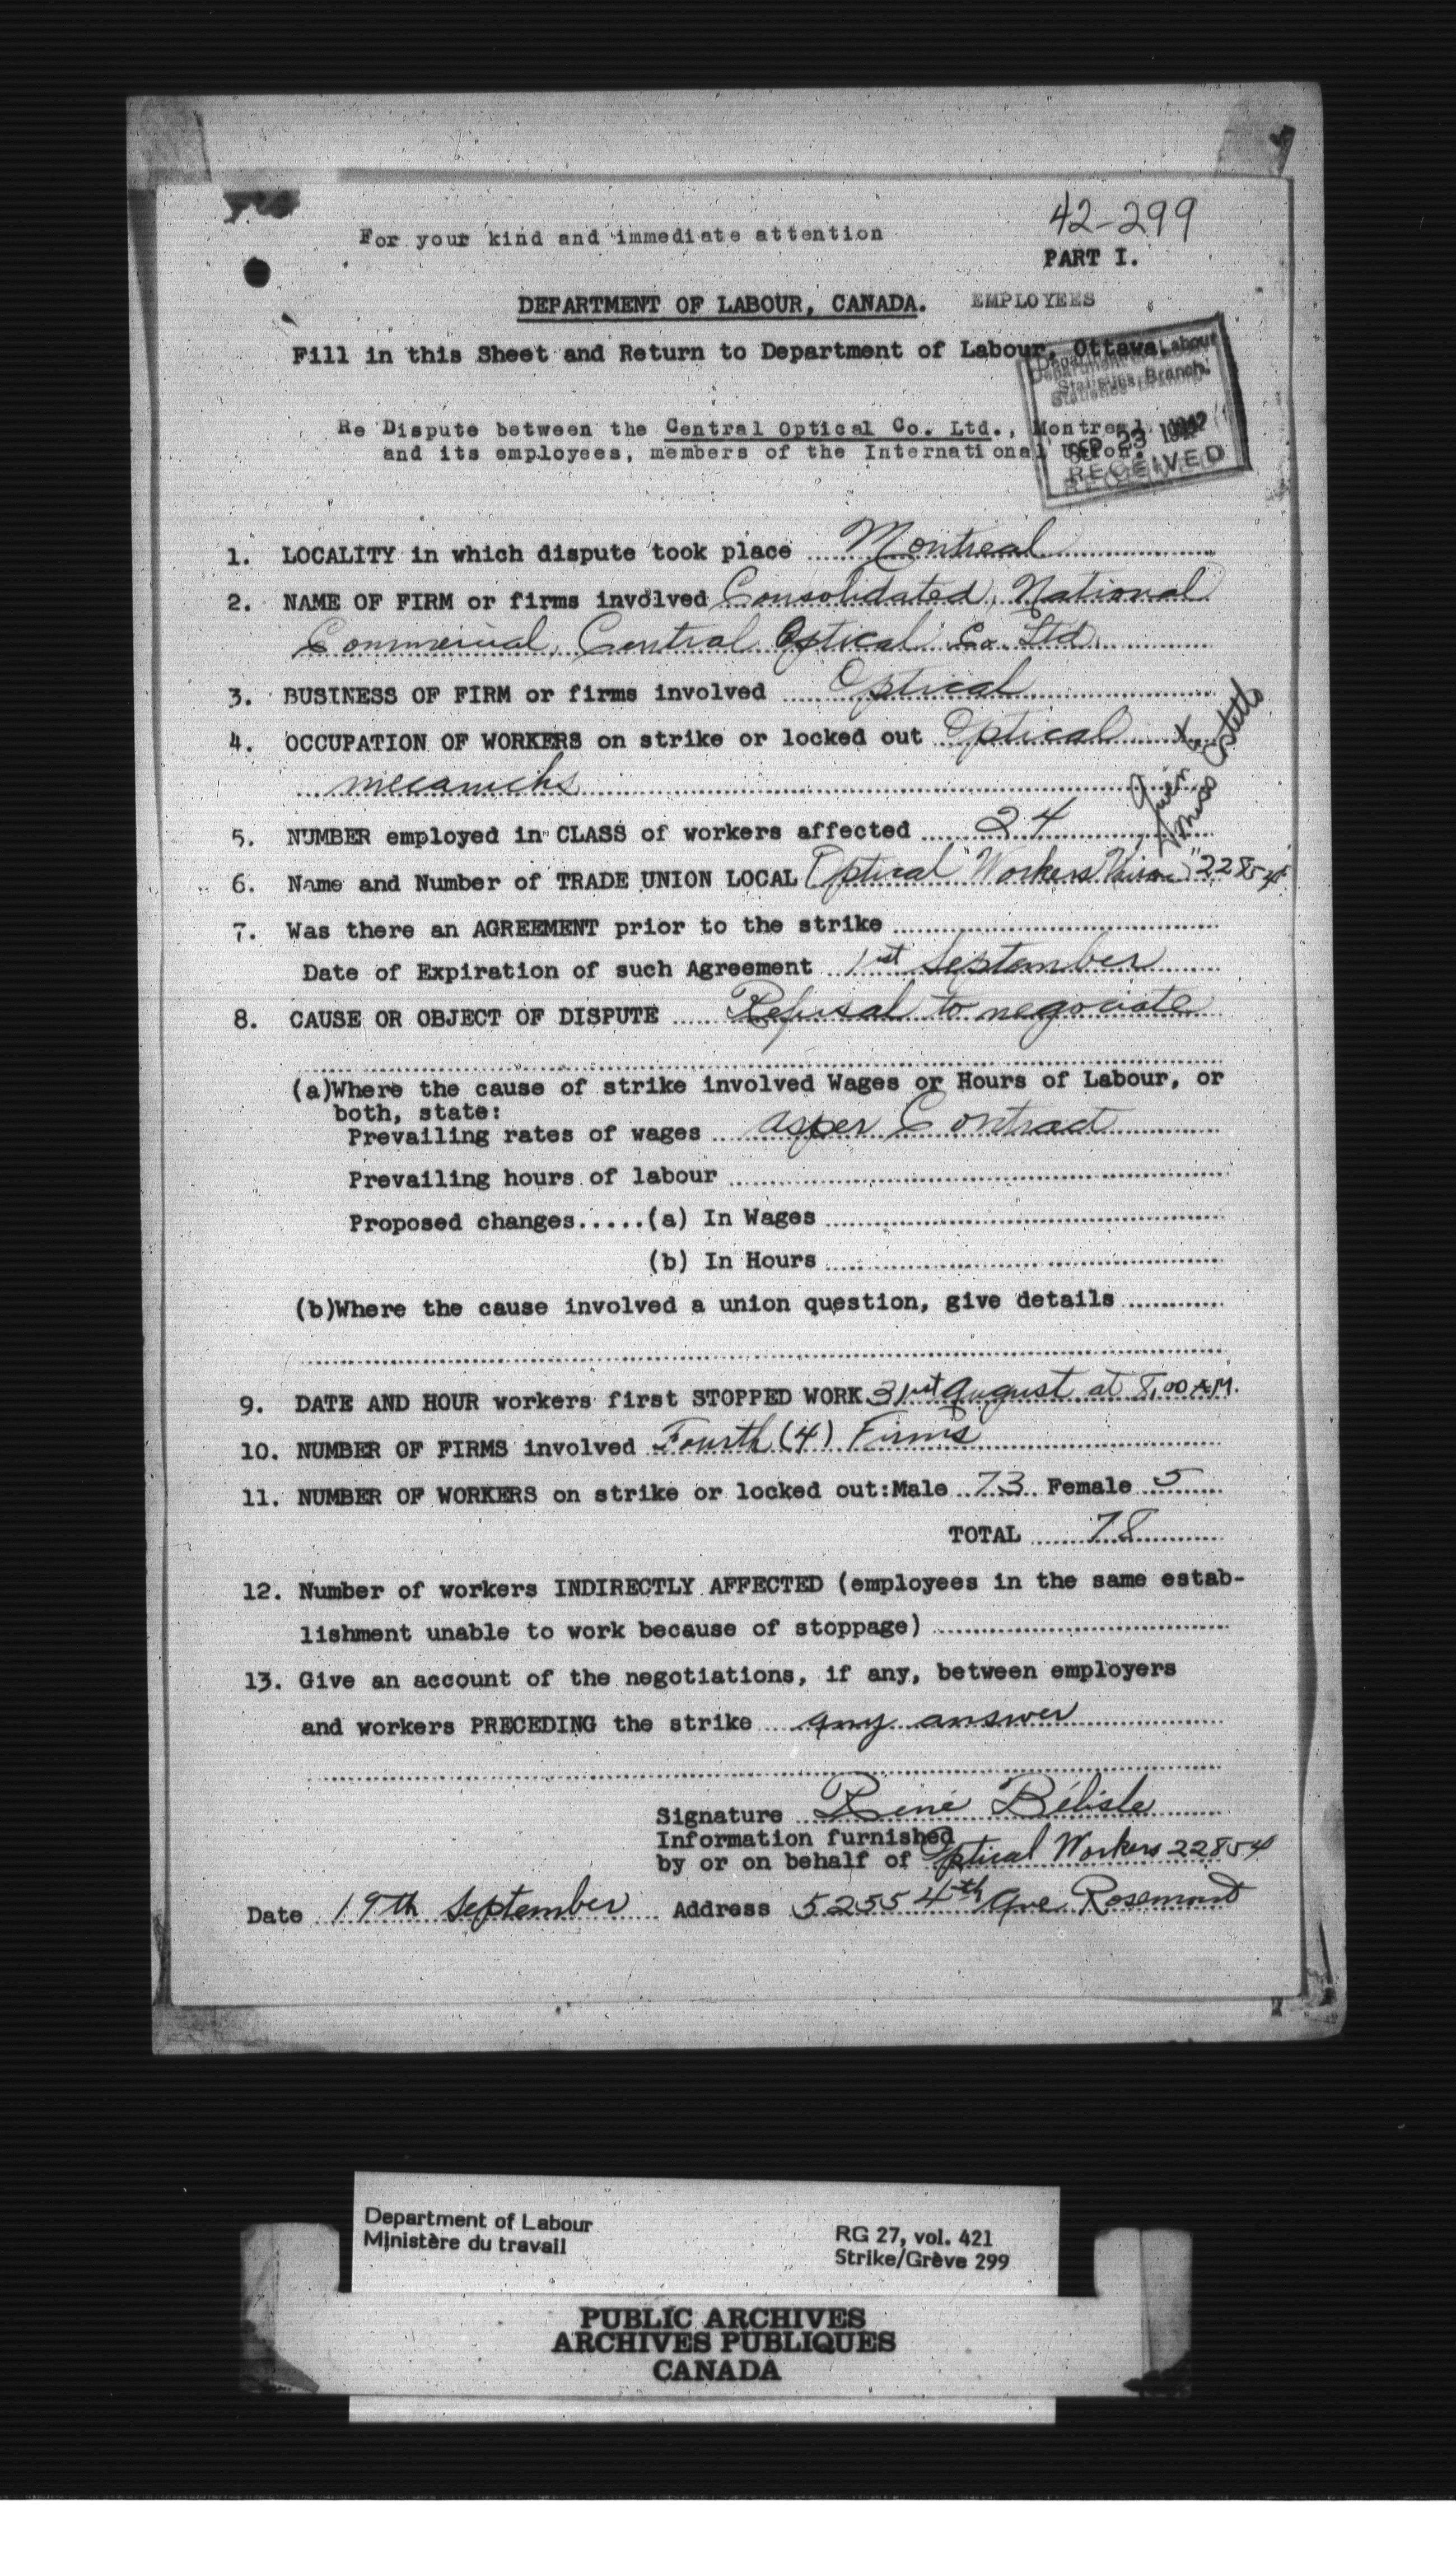 For your kind and immediate attention
42-299
PART I.
DEPARTMENT OF LABOUR, CANADA. EMPLOYEES
Fill in this Sheet and Return to Department of Labour, Ottawa.
Department of Labour
Statistics Branch.
SEP 23 1942
RECEIVED
Re Dispute between the Central Optical Co. Ltd., Montreal
and its employees, members of the International Union.
1. LOCALITY in which dispute took place Montreal
2. NAME OF FIRM or firms involved Consolidated, National
Commercial, Central Optical Co. Ltd.
3. BUSINESS OF FIRM or firms involved Optical
4. OCCUPATION OF WORKERS on strike or locked out Optical
mecanichs
5. NUMBER employed in CLASS of workers affected 24
6. Name and Number of TRADE UNION LOCAL Optical "Workers Union" 22854
7. Was there an AGREEMENT prior to the strike
Date of Expiration of such Agreement 1st September
8. CAUSE OR OBJECT OF DISPUTE Refusal to negociate
(a)Where the cause of strike involved Wages or Hours of Labour, or
both, state:
Prevailing rates of wages as per Contract
Prevailing hours of labour
Proposed changes.....(a) In Wages
(b) In Hours
(b)Where the cause involved a union question, give details
9. DATE AND HOUR workers first STOPPED WORK 31st August at 8,00 A.M.
10. NUMBER OF FIRMS involved Fourth (4) Firms
11. NUMBER OF WORKERS on strike or locked out:Male 73 Female 5
TOTAL 78
12. Number of workers INDIRECTLY AFFECTED (employees in the same estab-
lishment unable to work because of stoppage)
13. Give an account of the negotiations, if any, between employers
and workers PRECEDING the strike any answer
Signature René Bélisle
Information furnished
by or on behalf of Optical Workers 22854
Date 19th September Address 5255 4th Ave Rosemont
Department of Labour
Ministère du travail
RG 27, vol. 421
Strike/Grève 299
PUBLIC ARCHIVES
ARCHIVES PUBLIQUES
CANADA